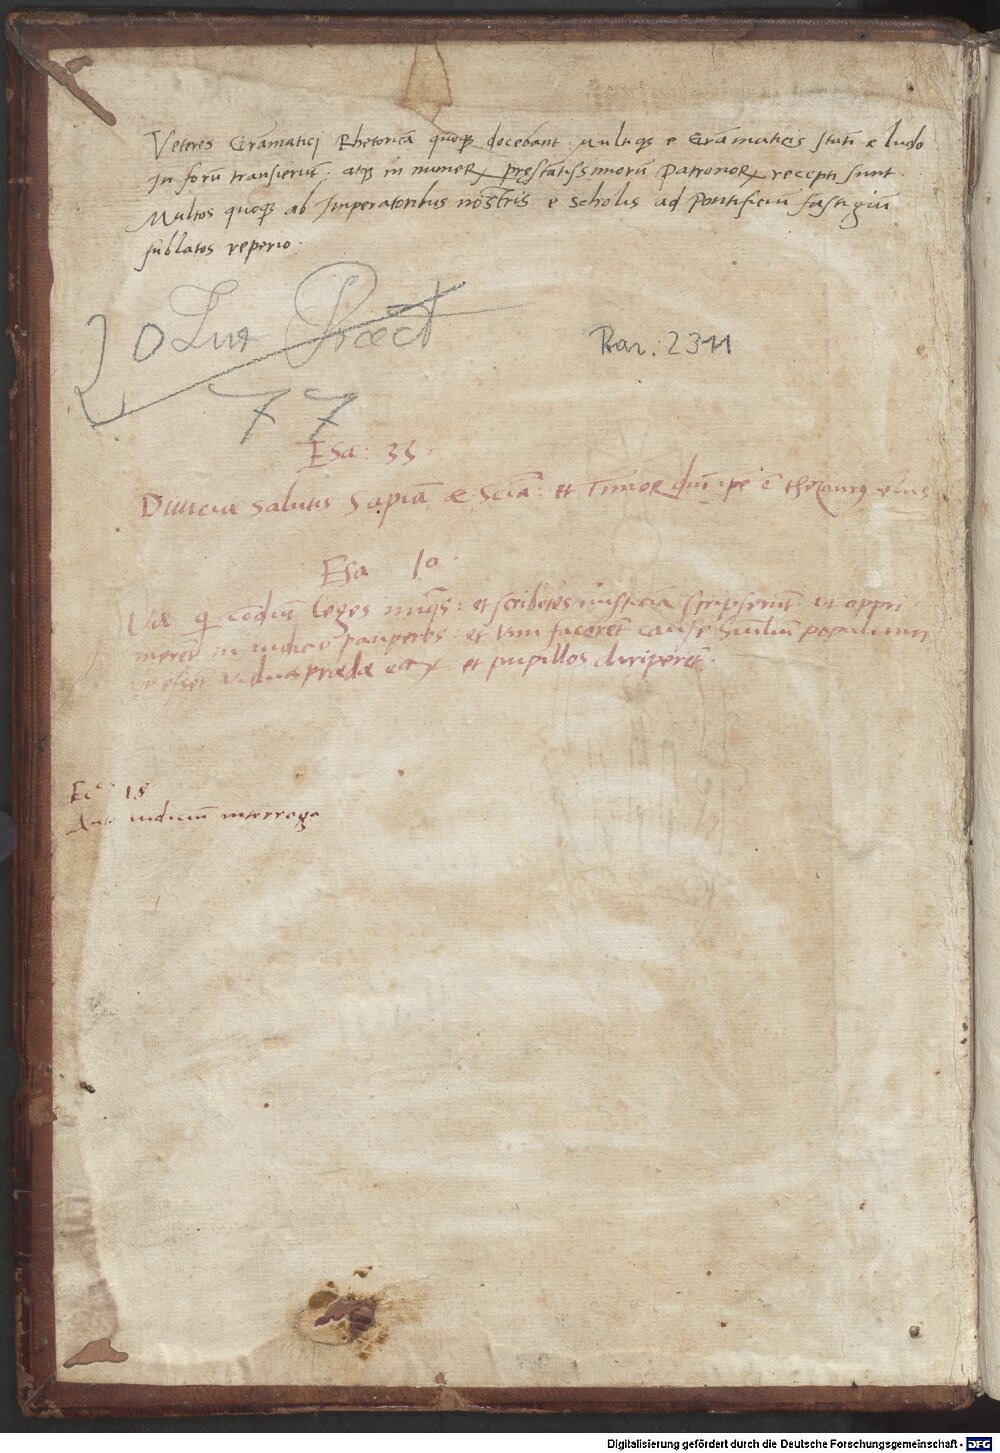 Veteres Grãmaticj Rhetoricã quoqꝫ docebant. Multiqꝫ e Grãmaticis statĩ e ludo
In forũ transierũt: atqꝫ in numeꝝ prestãtissimorũ Patronoꝝ recepti sunt.
Multos quoqꝫ ab Imperatoribus nostris e Scholis ad Pontificiũ fastigiũ
sublatos reperio.
Rar. 2311
77
Esa: 33.
Diuicie salutis sapiã & sciã: et Timor dnĩ ipẽ ẽ thezaurꝰ eius
Esa 10.
Væ q̃ cõdũt leges iniq̃s: et scribẽtes iniusticiã scripserũt: ut oppri
merẽt in iudicio pauperes: et vim facerẽt cause hũiliũ populi mei
ut essẽt viduæ præda eoꝝ et pupillos diriperẽt.
18
Ante iudiciũ interroga
Digitalisierung gefördert durch die Deutsche Forschungsgemeinschaft - DFG